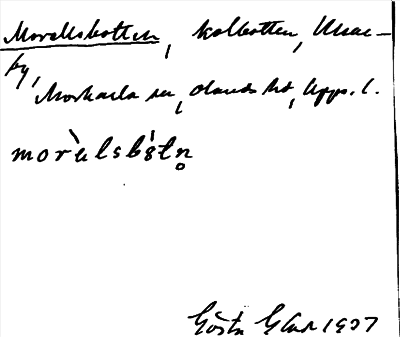 Morellsbotten, kolbotten, Unae-
by,
Morkarla sn, Olands hd, Upps. l.
mor̀ɯlsbótn̥
Gösta 1937